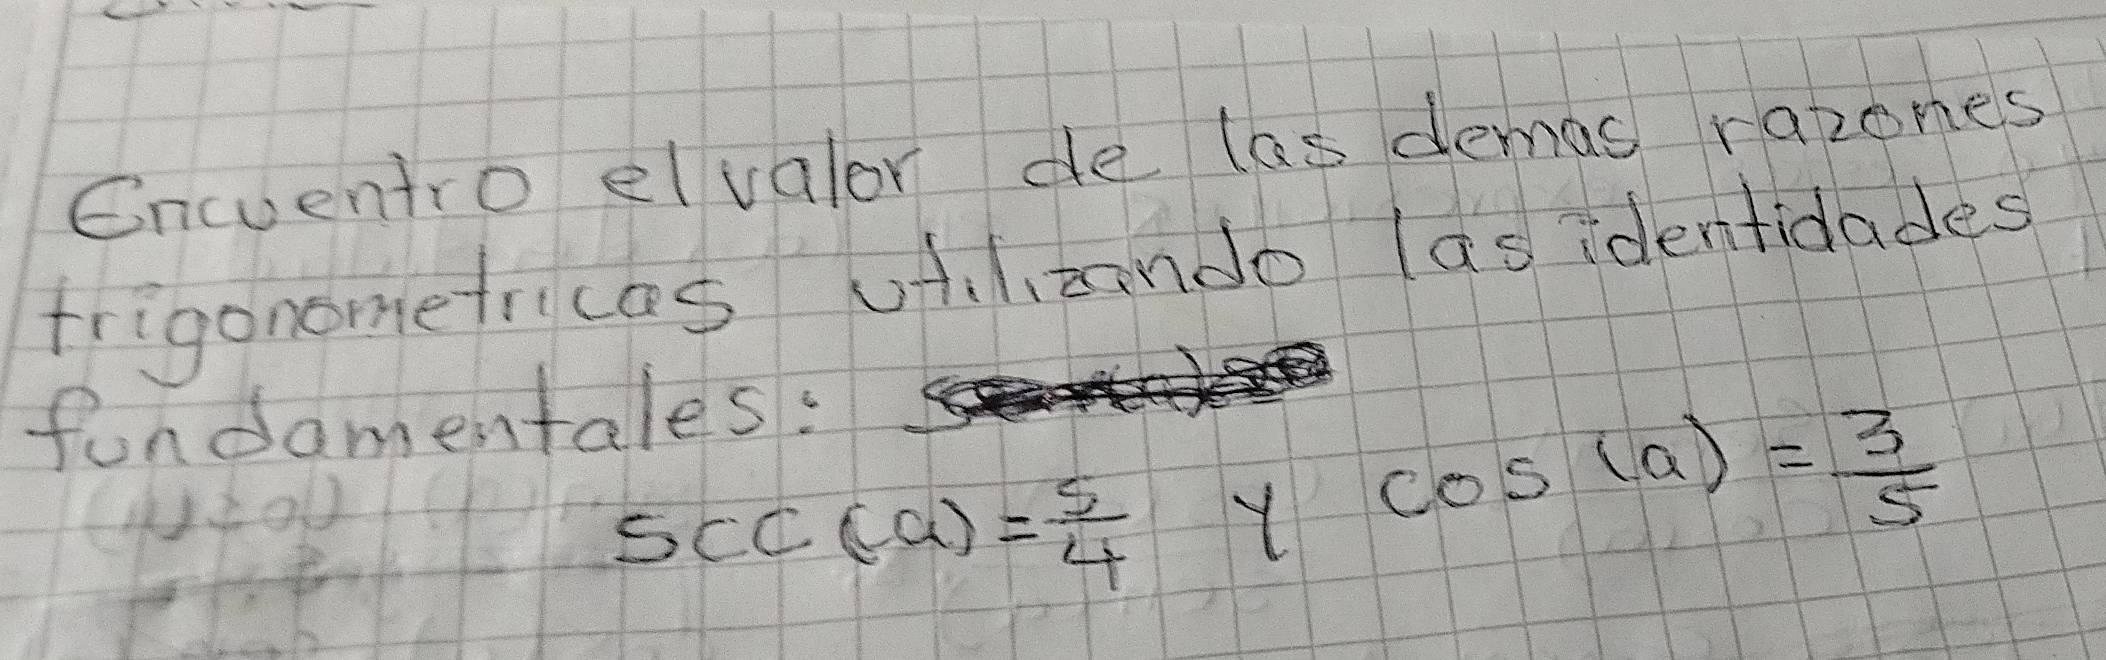 Encuentro el valor de las demas razones
trigonometricas utilizando las identidades
fundamentales:
scc (a) = 5/4 y cos (a) = 3/5